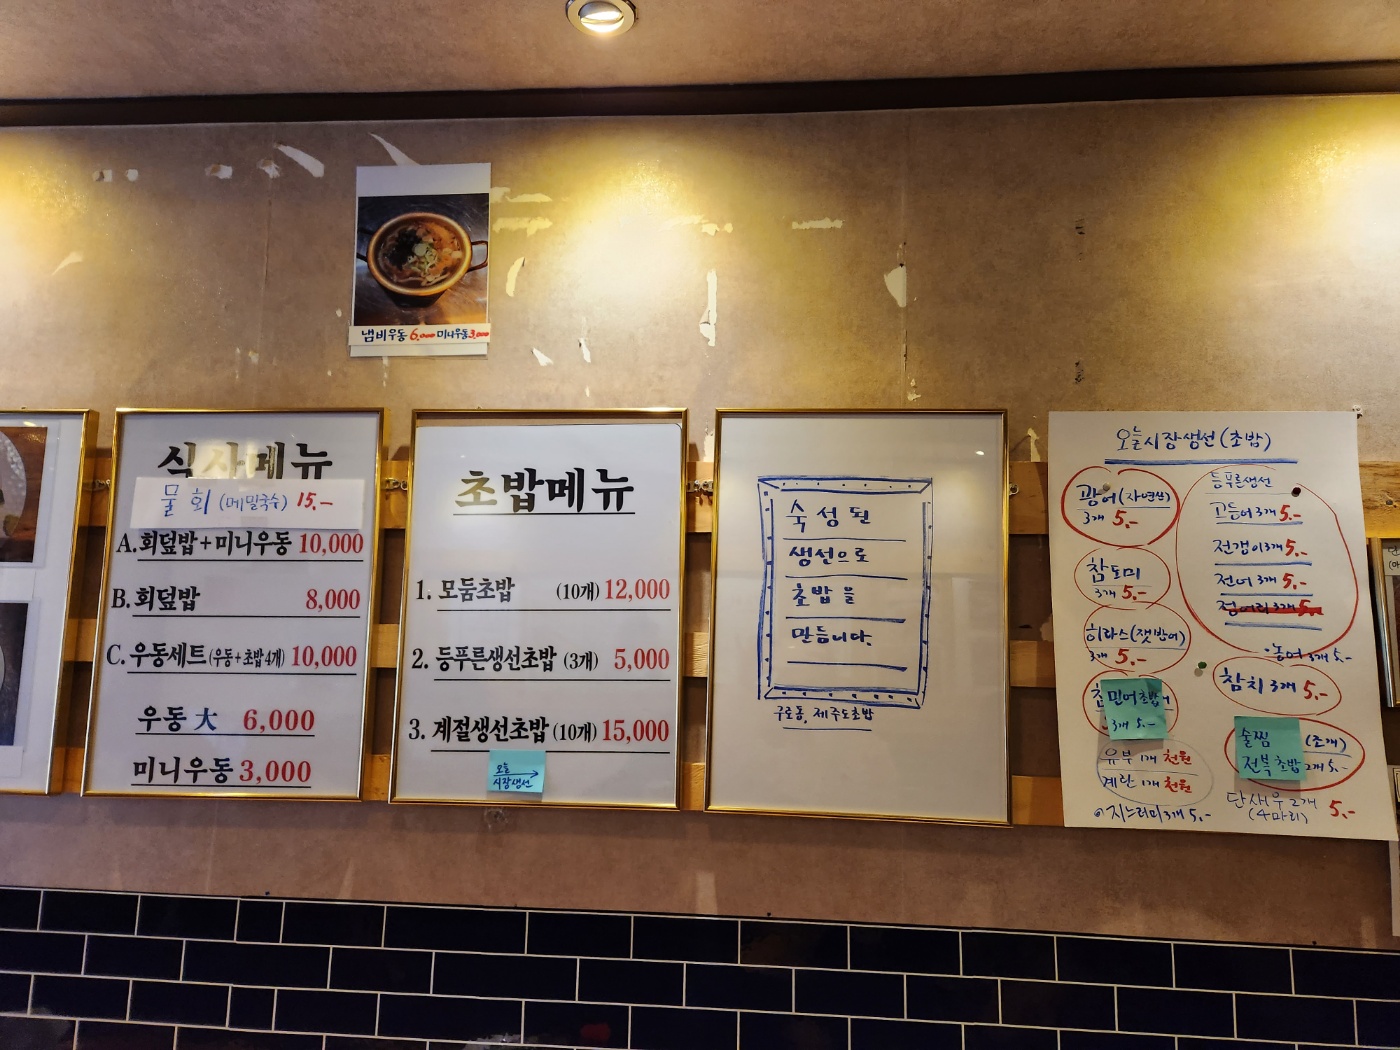 냄비우동 6,000 미니우동 3,000
식사메뉴
물회 (메밀국수) 15.-
A. 회덮밥+미니우동 10,000
B. 회덮밥 8,000
C. 우동세트 (우동+초밥4개) 10,000
우동 大 6,000
미니우동 3,000
초밥메뉴
1. 모둠초밥 (10개) 12,000
2. 등푸른생선초밥 (3개) 5,000
3. 계절생선초밥 (10개) 15,000
오늘
시장생선
숙성된
생선으로
초밥을
만듭니다.
구로동, 제주도초밥
오늘시장생선(초밥)
광어(자연산)
3개 5.-
참도미
3개 5.-
히라스(잿방어)
3개 5.-
민어초밥
3개 5.-
유부 1개 천원
계란 1개 천원
지느러미 3개 5.-
등푸른생선
고등어 3개 5.-
전갱이 3개 5.-
전어 3개 5.-
정어리 3개 5.-
농어 3개 5.-
참치 3개 5.-
술찜 (조개)
전복초밥 2개 5.-
단새우 2개 5.-
(4마리)